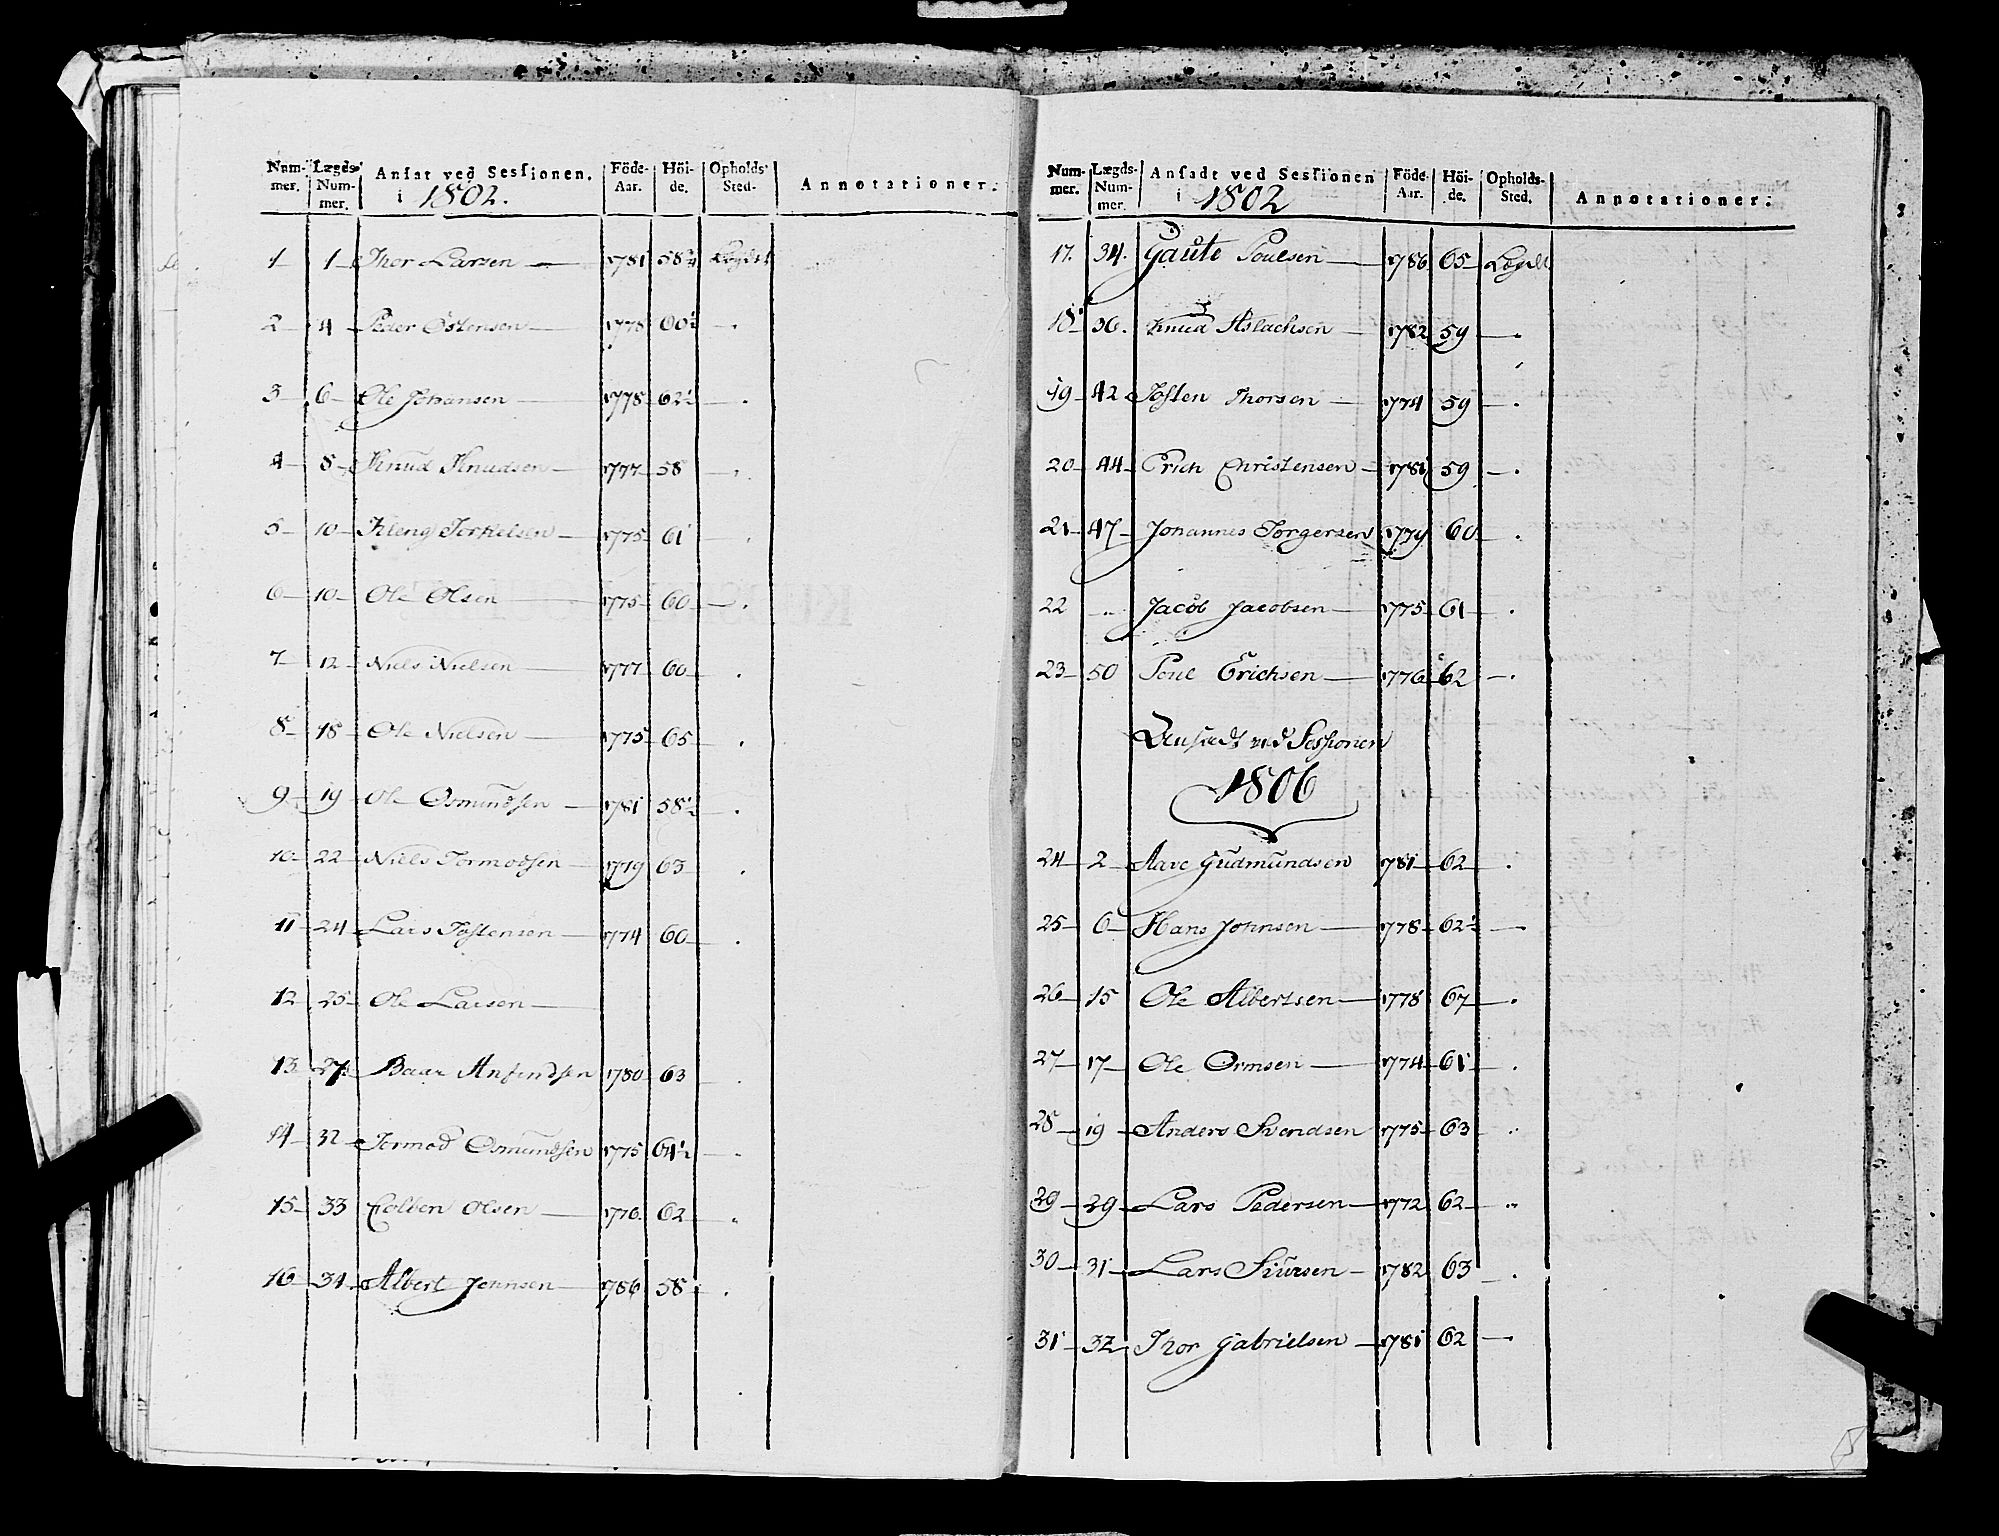 Num- mer. Lægds- Num- mer. Ansat ved Sessionen. i 1802. Föde- Aar. Höi- de. Opholds- Sted. Annotationer.
1 1 Thor Larsen 1781 58½ Lægdet
2 4 Peder Østensen 1778 60½
3 6 Ole Johansen 1778 62½
4 8 Knud Knudsen 1777 58
5 10 Kleng Torkelsen 1775 61
6 10 Ole Olsen 1775 60
7 12 Niels Nielsen 1777 60
8 18 Ole Nielsen 1775 65
9 19 Ole Osmundsen 1781 58½
10 22 Niels Tormodsen 1779 63
11 24 Lars Tostensen 1774 60
12 25 Ole Larsen
13 27 Baar Anfindsen 1780 63
14 32 Tormod Osmundsen 1775 64½
15 33 Colben Olsen 1776 62
16 34 Albert Johnsen 1786 58
Num- mer. Lægds- Num- mer. Ansadt ved Sessionen i 1802 Föde- Aar. Höi- de. Opholds- Sted. Annotationer.
17. 34. Gaute Poulsen 1786 65 Lægdet
18 36. Knud Aslachsen 1782 59
19 42 Tosten Thorsen 1774 59
20 44 Erich Christensen 1781 59
21 47 Johannes Torgersen 1779 60
22 " Jacob Jacobsen 1775 61
23 50 Poul Erichsen 1776 62
Ansadt ved Sessionen
1806
24 2 Aave Gudmundsen 1781 62
25 6 Hans Johnsen 1778 62½
26 15 Ole Albertsen 1778 67
27 17 Ole Ormsen 1774 61
28 19 Anders Svendsen 1775 63
29 29 Lars Pedersen 1772 62
30 31 Lars Siursen 1782 63
31 32 Thor Gabrielsen 1781 62